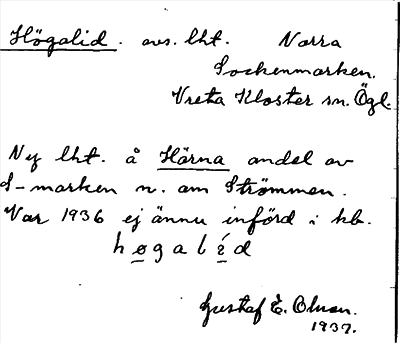 Högalid. avs. lht. Norra
Sockenmarken.
Vreta Kloster sn. Ögl.
Ny lht. å Härna andel av
S-marken n. om Strömmen.
Var 1936 ej ännu införd i kb.
høgalíd
Gustaf E. Olsson.
1937.